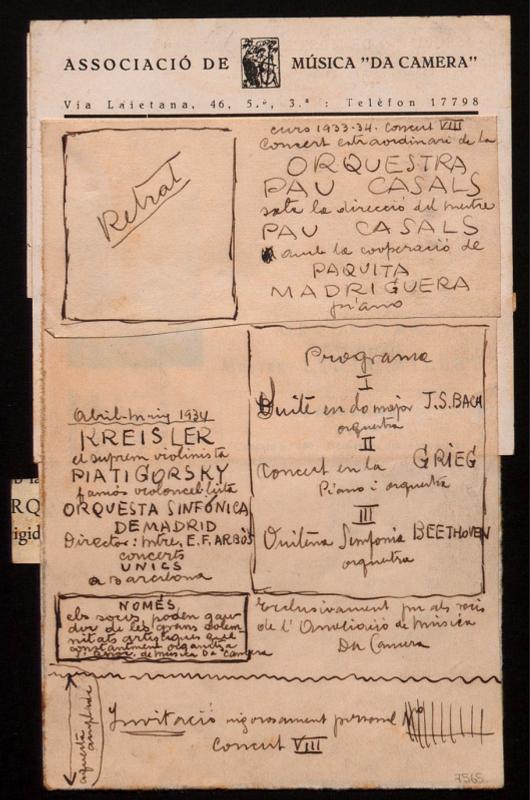 ASSOCIACIÓ DE MÚSICA "DA CAMERA"
Via Laietana, 46, 5.º, 3.ª : Telèfon 17798
Retrat
curs 1933-34. Concert VIII
Concert extraordinari de la
ORQUESTRA
PAU CASALS
sota la direcció del mestre
PAU CASALS
amb la cooperació de
PAQUITA
MADRIGUERA
piano
Programa
I
Suite en do major J.S.BACH
orquestra
II
Concert en la GRIEG
Piano i orquestra
III
Vuitena Simfonia BEETHOVEN
orquestra
Abril-Maig 1934
KREISLER
el suprem violinista
PIATIGORSKY
famós violoncel·lista
ORQUESTA SINFÓNICA
DE MADRID
Director: Mtre. E.F. ARBÓS
concerts
UNICS
a Barcelona
NOMÉS
els socis poden gau-
dir de les grans solem-
nitats artístiques que
constantment organitza
l'Assoc. de Música Da Camera
Exclusivament per als socis
de l'Associació de Música
Da Camera
aquesta amplada
Invitació rigorosament personal Nº
Concert VIII
RQ
igid
7565